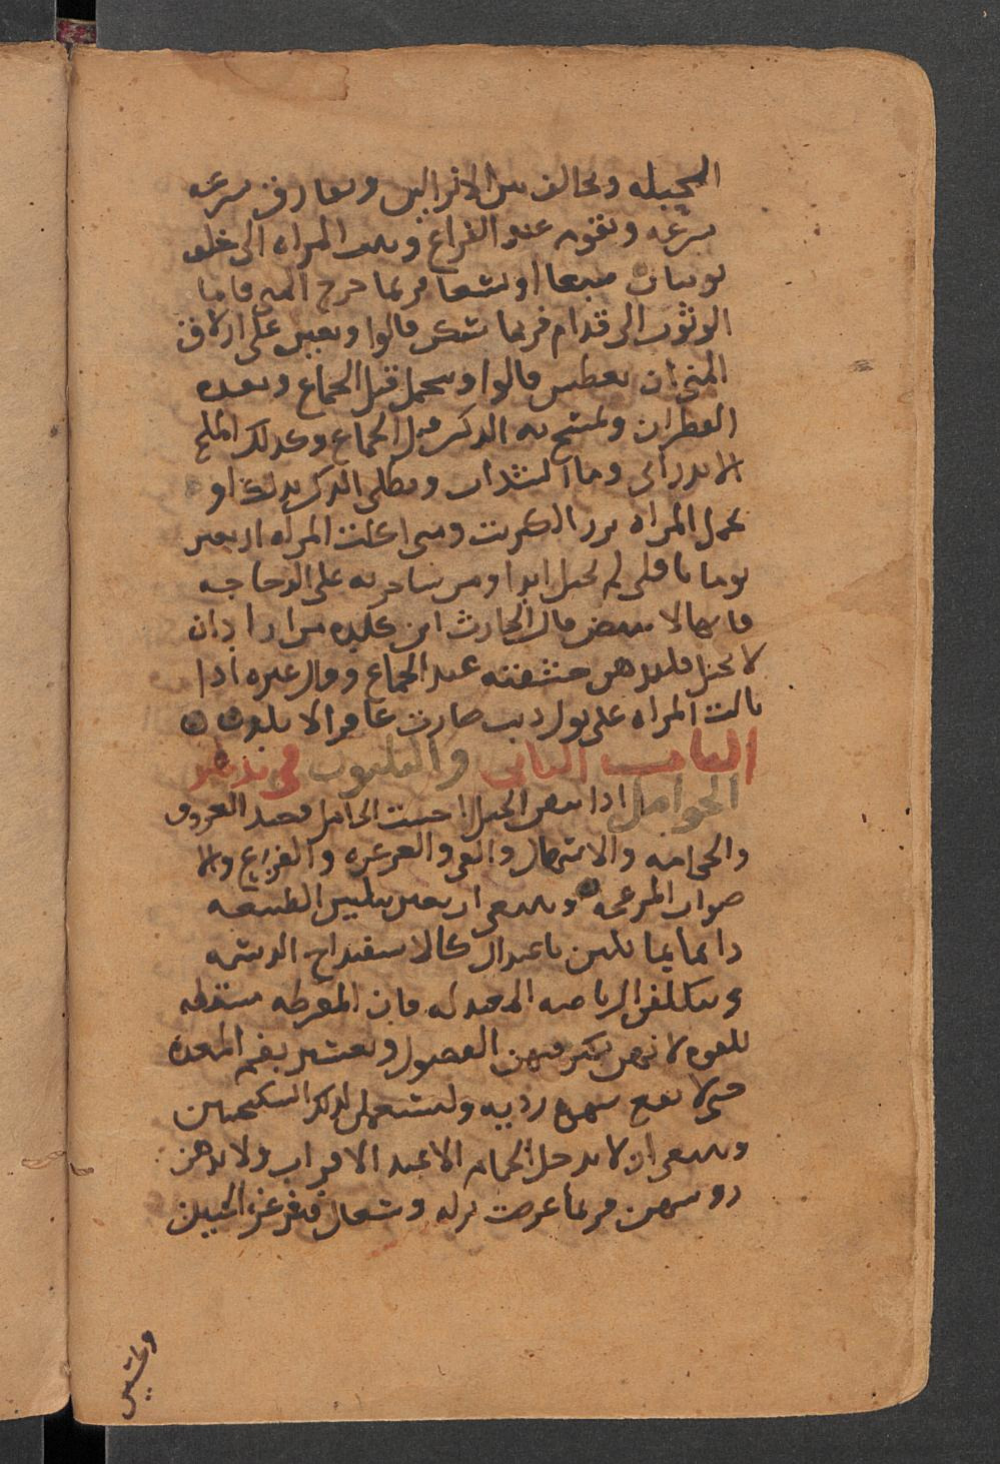 المحبله ويخالف بين الانزالين ويفارق بسرعه
بسرعه وتقوم عند الفراغ وتثب المراه الى خلف
وثبات سبعا او تسعا فربما خرج المني فاما
الوثوب الى قدام فربما سكن قالوا ويعين على ازلاق
المني ان تعطس قالوا وتحمل قبل الجماع وبعده
القطران ويمسح به الذكر قبل الجماع وكذلك الملح
الاندراني وماا السذاب ويطلى الذكر بذلك او
تحمل المراه بزر الكرنب ومتى اكلت المراه اربعين
يوما باقلى لم تحبل ابدا ومن على الدجاجه
فانها لا تبيض قال الحارث ابن كلده من اراد ان
لا تحبل فليدهن حشفته عند الجماع وقال غيره اذا
بالت المراه على بول ذيب صارت عاقرا لا تلد
الباب الثاني والثلثون في تدبير
الحوامل اذا الحبل الحامل فصد العروق
والحجامه والاسهال والقي والغرغره والفزع والا
صوات المزعجه وينبغي ان يعنين بتليين الطبيعه
دايما بما يلين باعتدال كالاسفيداج الدسمه
ويتكلفن الرياضه المعتدله فان المفرطه مسقطه
للقوه لانهن يكثر فيهن الفضول ويعتنين بفم المعده
حتى لا تقع شهوه رديه وليستعمل لذلك السكنجبين
وينبغي ان لا يدخل الحمام الا عند الاقراب ولا يدهن
روسهن فربما عرضت نزله وسعال فيزعزع الجنين